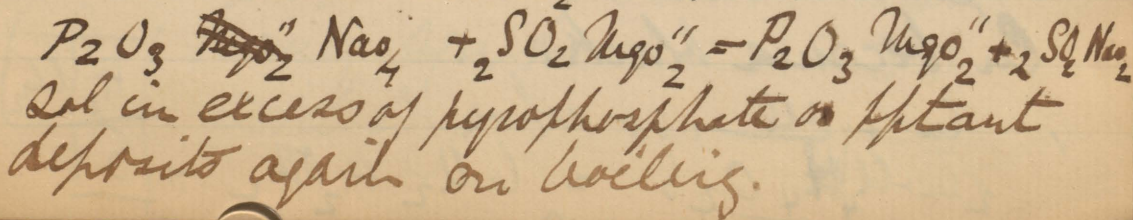 P₂O₃ Mgo″₂ Nao₄ + ₂SO₂ Mgo″₂ = P₂O₃ Mgo″₂ + ₂SO₂ Nao₂
Sol in excess of pyrophosphate or pptant
deposits again on boiling.